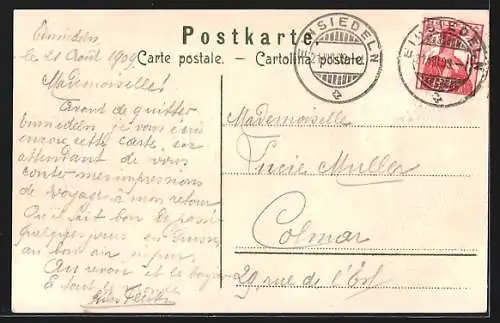 Postkarte
Carte postale. — Cartolina postale.
EINSIEDELN
EINSIEDELN
le 21 Août 1909
Mademoiselle!
Avant de quitter
je vous écris
encore cette carte, en
attendant de vous
conter mes impressions
de voyage à mon retour
Qu'il fait bon de
quelques jours en Suisse
au bon air
Au revoir et le
Mademoiselle
Lucie Muller
Colmar
29 rue de l'Est